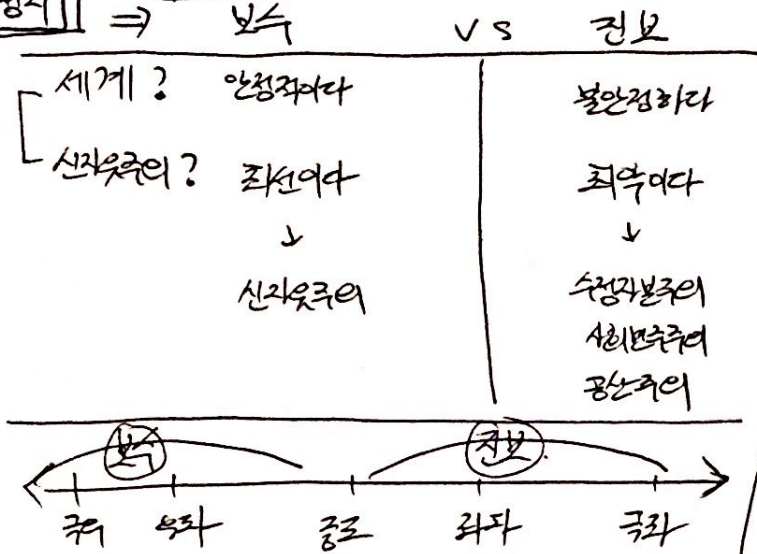 정치 ⇒ 보수 vs 진보
세계? 안정적이다 불안정하다
신자유주의? 최선이다 최악이다
↓ ↓
신자유주의 수정자본주의
사회민주주의
공산주의
보수 진보
극우 우파 중도 좌파 극좌